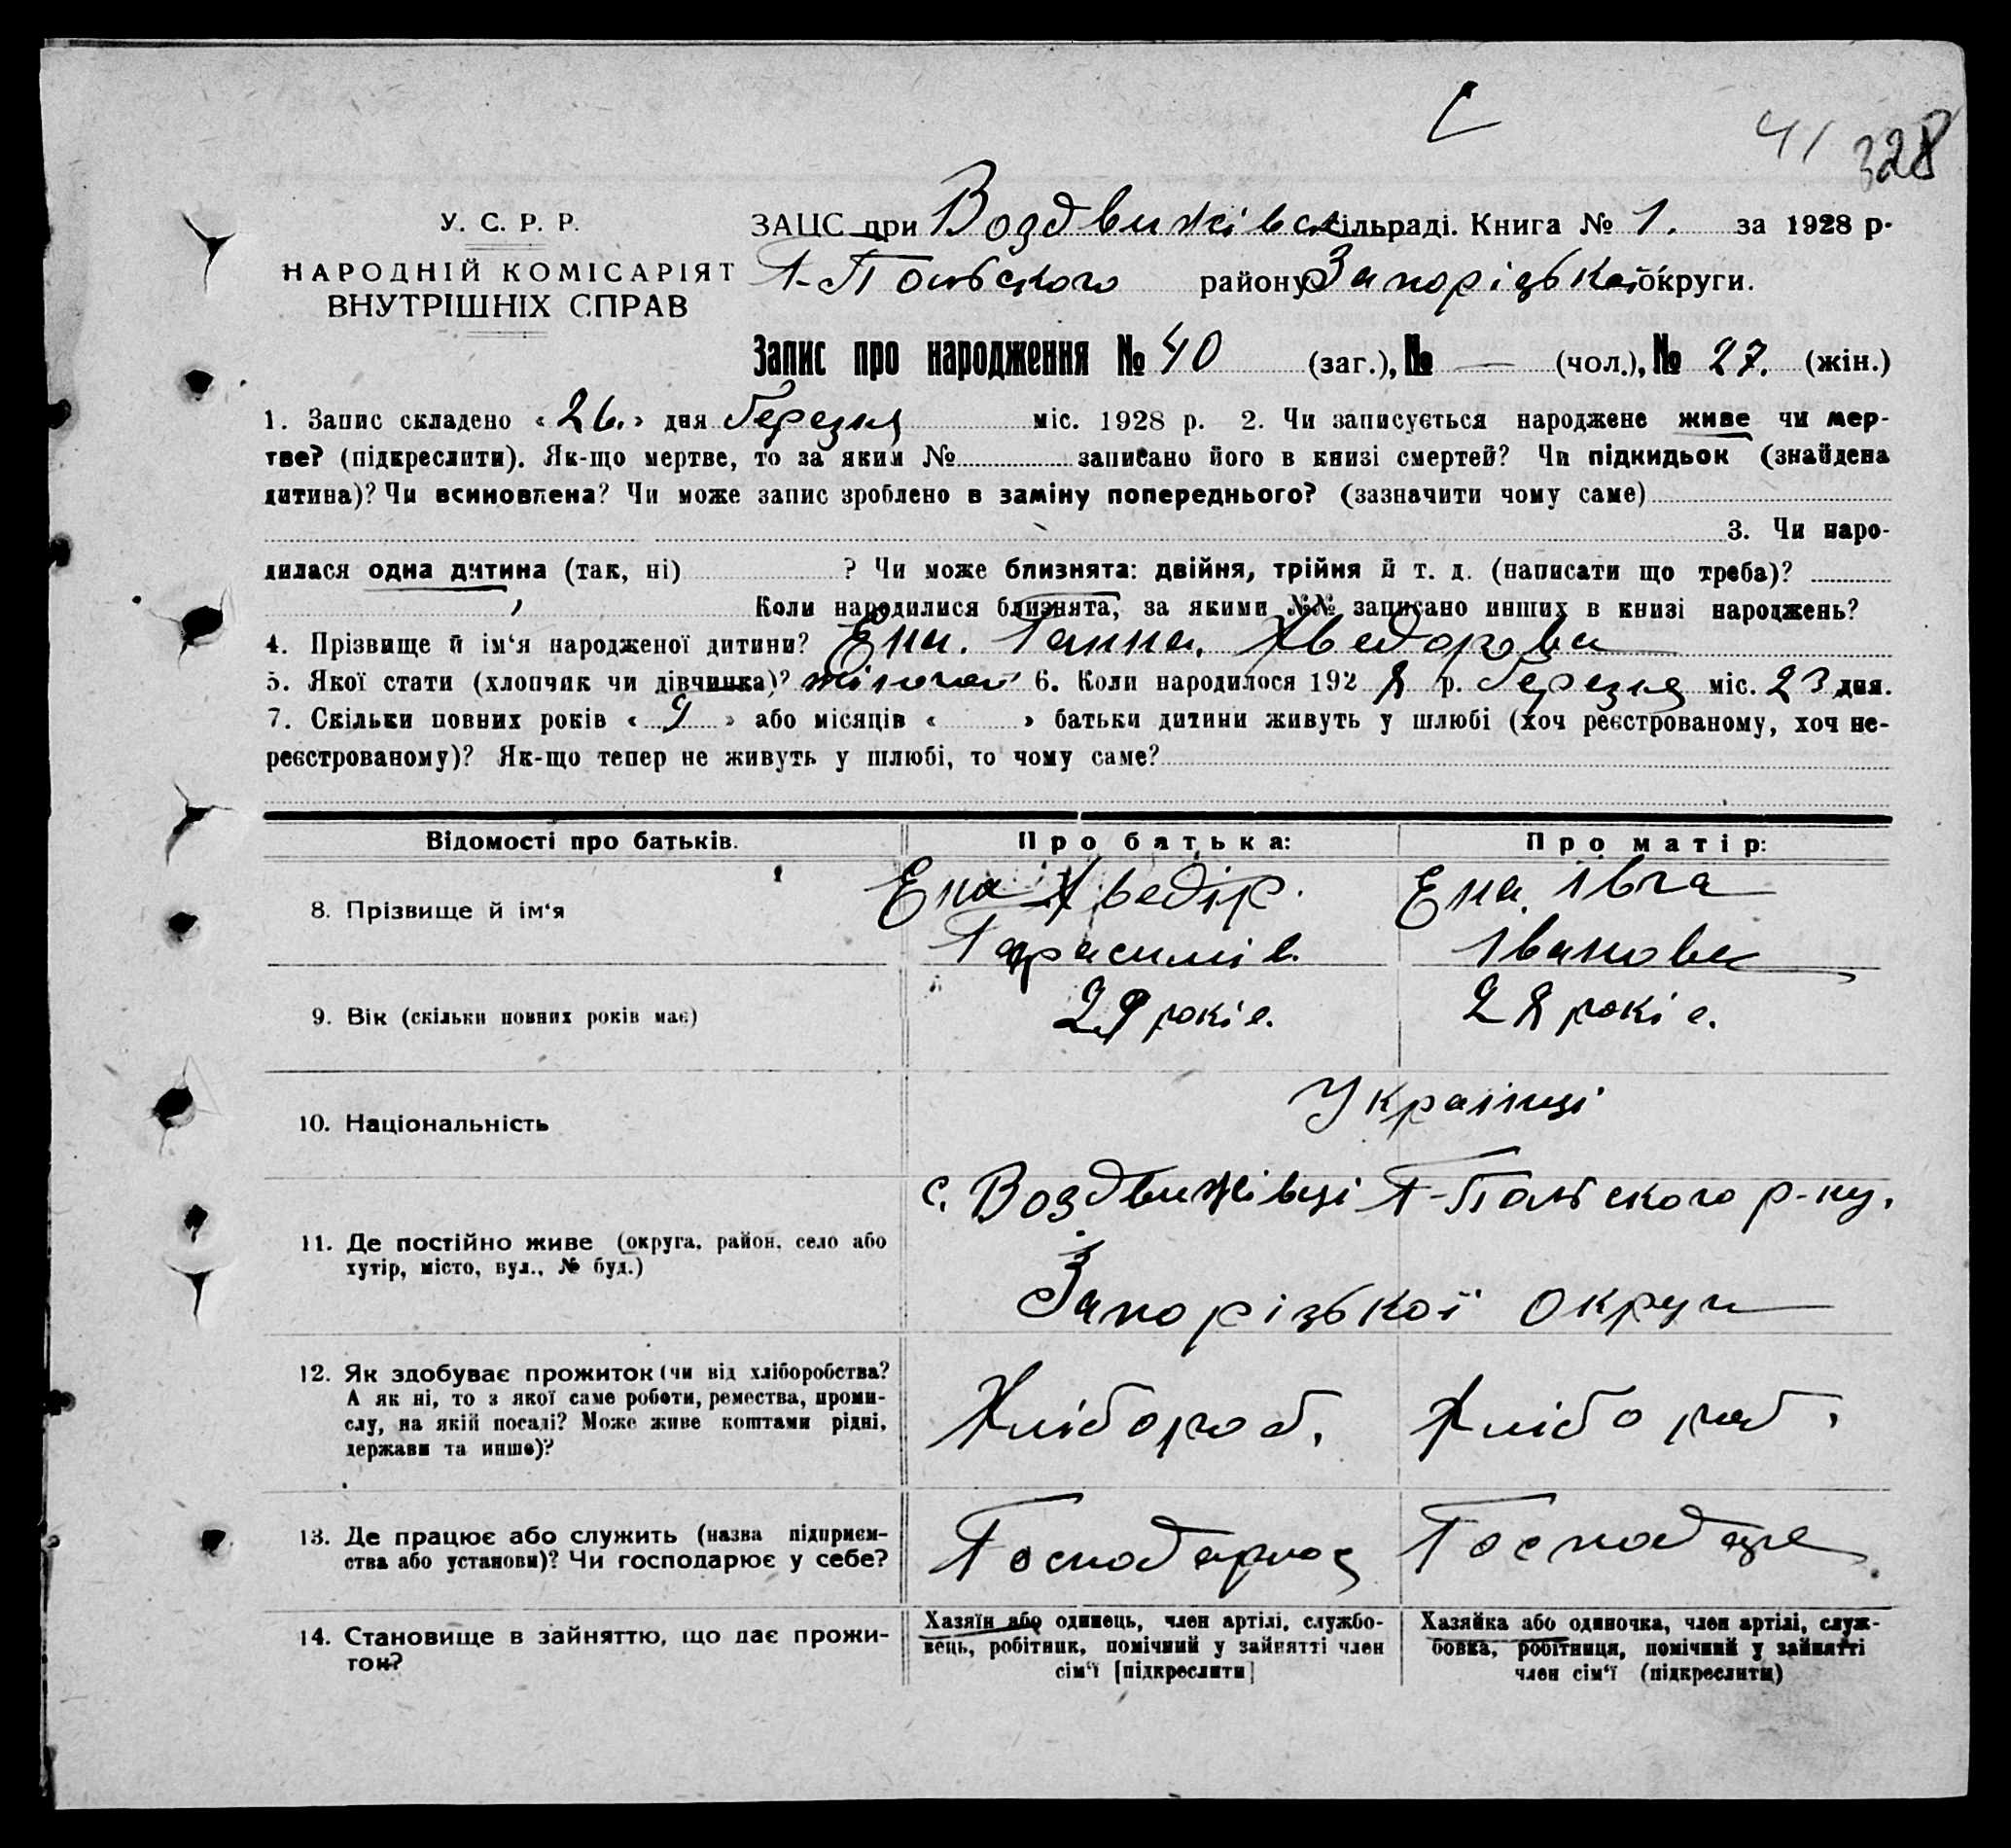 41 328
У. С. Р. Р.
НАРОДНІЙ КОМІСАРІЯТ
ВНУТРІШНІХ СПРАВ
ЗАЦС при Воздвижівськ сільраді. Книга № 1. за 1928 р.
Г-Польського району Запорізької округи.
Запис про народження № 40 (заг.), № — (чол.), № 27. (жін.)
1. Запис складено «26.» дня березня міс. 1928 р. 2. Чи записується народжене живе чи мер-
тве? (підкреслити). Як-що мертве, то за яким № записано його в книзі смертей? Чи підкидьок (знайдена
дитина)? Чи всиновлена? Чи може запис зроблено в заміну попереднього? (зазначити чому саме)
3. Чи наро-
дилася одна дитина (так, ні) ? Чи може близнята: двійня, трійня й т. д. (написати що треба)?
Коли народилися близнята, за якими №№ записано инших в книзі народжень?
4. Прізвище й ім‘я народженої дитини? Ена. Ганна. Хведорова
5. Якої стати (хлопчик чи дівчинка)? жіночої 6. Коли народилося 1928 р. березня міс. 23 дня.
7. Скільки повних років «9» або місяців « » батьки дитини живуть у шлюбі (хоч реєстрованому, хоч не-
реєстрованому)? Як-що тепер не живуть у шлюбі, то чому саме?
Відомості про батьків. Про батька: Про матір:
8. Прізвище й ім‘я
Ена Хведір.
Гарасимів.
Ена. Івга
Іванова
9. Вік (скільки повних років має)
29 років.
28 років.
10. Національність
Українці
11. Де постійно живе (округа, район, село або
хутір, місто, вул., № буд.)
с. Воздвижівці Г-Польського р-ну.
Запорізької округи
12. Як здобуває прожиток (чи від хліборобства?
А як ні, то з якої саме роботи, ремества, проми-
слу, на якій посаді? Може живе коштами рідні,
держави та инше)?
Хлібороб.
Хлібороб.
13. Де працює або служить (назва підприєм-
ства або установи)? Чи господарює у себе?
Господарює
14. Становище в зайняттю, що дає прожи-
ток?
Хазяїн або одинець, член артілі, службо-
вець, робітник, помічний у зайнятті член
сім‘ї [підкреслити]
Хазяйка або одиночка, член артілі, служ-
бовка, робітниця, помічний у зайнятті
член сім‘ї (підкреслити)